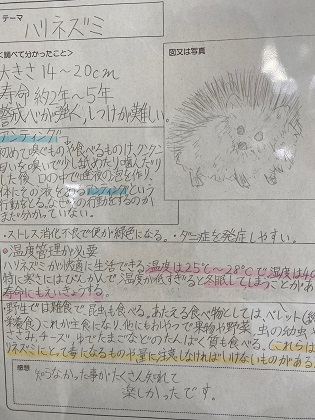 テーマ
ハリネズミ
<調べて分かったこと>
図又は写真
大きさ 14〜20cm
寿命 約2年〜5年
警戒心が強く、しつけが難しい。
アンティング
初めて嗅ぐものや食べるものは、クンクン
匂いを嗅いで少し舐めたり噛んだり
した後、口の中で唾液の泡を作り、
体にその液を塗るアンティングという
行動をとる。なぜこの行動をするのか
まだ分かっていない。
・ストレス、消化不良で便が緑色になる。・ダニ症を発症しやすい。
◦温度管理が必要
ハリネズミが快適に生活できる温度は25℃〜28℃で湿度は40
特に寒さにはびんかんで温度が低すぎると冬眠してしまうことがあ
寿命にもえいきょうする。
・野生では雑食で、昆虫も食べる。あたえる食べ物としては、ペレット(総
栄養食)これが主食になり、他にもおやつで果物や野菜、虫の幼虫や
ささみ、チーズ、ゆでたまごなどのたんぱく質も食べる。(これらは
リネズミにとって毒になるものや量に注意しなければいけないものがある。
感想
知らなかった事がたくさん知れて
楽しかったです。